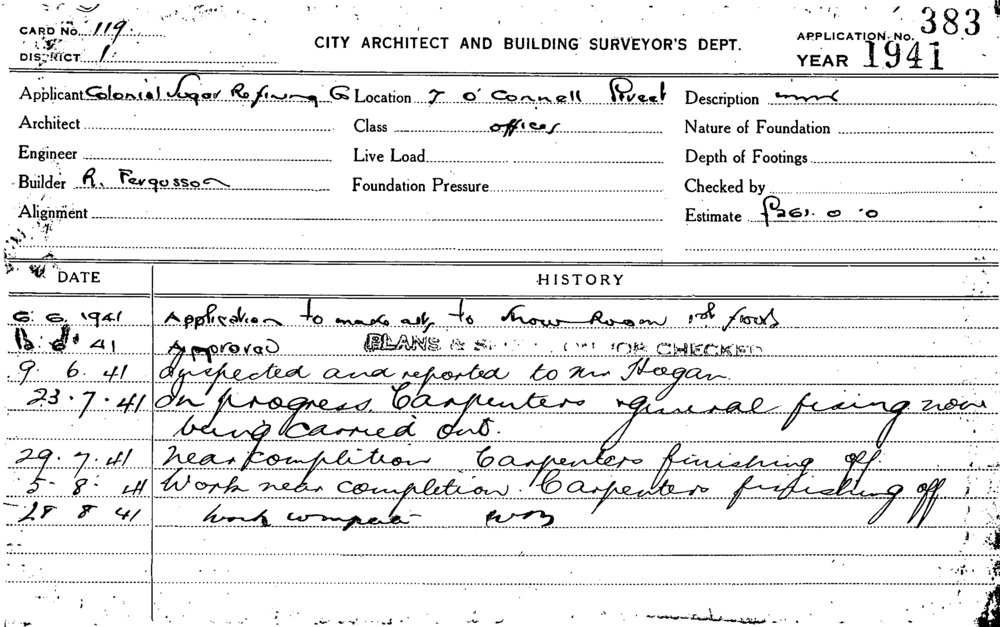 CARD No. 119.
DISTRICT 1
CITY ARCHITECT AND BUILDING SURVEYOR'S DEPT.
APPLICATION No. 383
YEAR 1941
Applicant Colonial Sugar Refining Co Location 7 O'Connell Street Description
Architect Class offices Nature of Foundation
Engineer Live Load Depth of Footings
Builder R. Fergusson Foundation Pressure Checked by
Alignment Estimate £261. 0. 0
DATE HISTORY
6. 6. 1941 Application to make alts to Show Room 1st floor
6. 41 Approved PLANS & JOB CHECKED
9. 6. 41 Inspected and reported to Mr Hogan
23. 7. 41 In progress. Carpenters & general fixing now
being carried out.
29. 7. 41 Near complition Carpenters finishing off.
5. 8. 41 Work near completion. Carpenters finishing off
28 8 41 Work complete